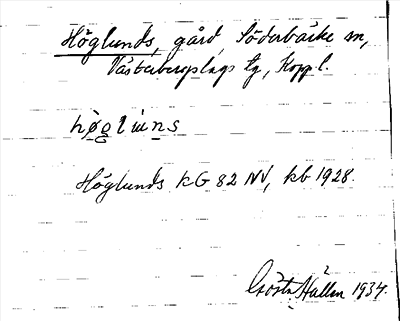 Höglunds, gård, Söderbärke sn,
Västerbergslags tg, Kopp.l.
hø̀gluns
Höglunds KG 82 NV, kb 1928.
Gösta Hallén 1934.